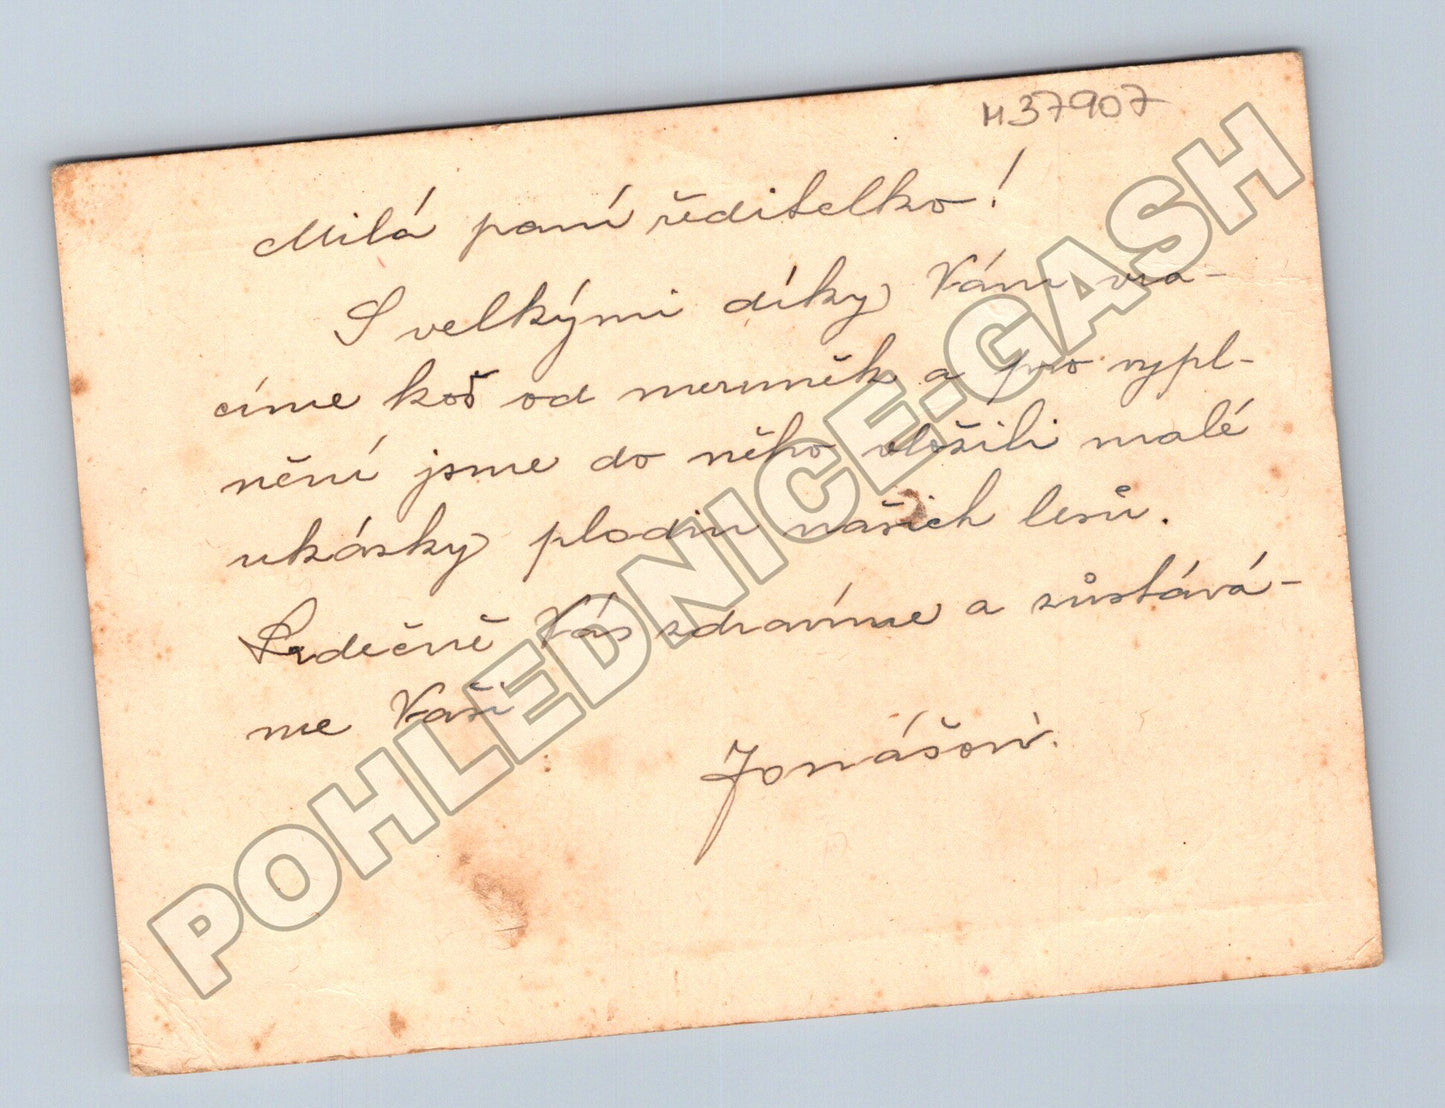 M37907
Milá paní ředitelko!
S velkými díky Vám vra-
címe koš od meruněk a pro vypl-
nění jsme do něho vložili malé
ukázky plodin našich lesů.
Srdečně Vás zdravíme a zůstává-
me Vaši
Jonášovi.
POHLEDNICE-GASH